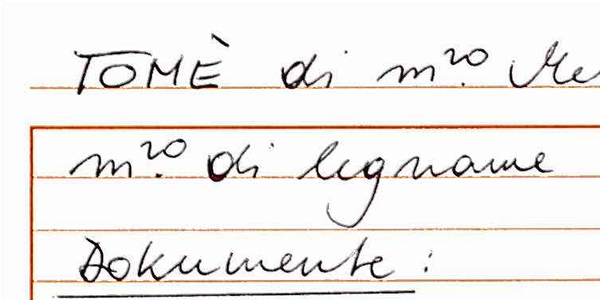 TOMÈ di m.ro
m.ro di legname
Dokumente: